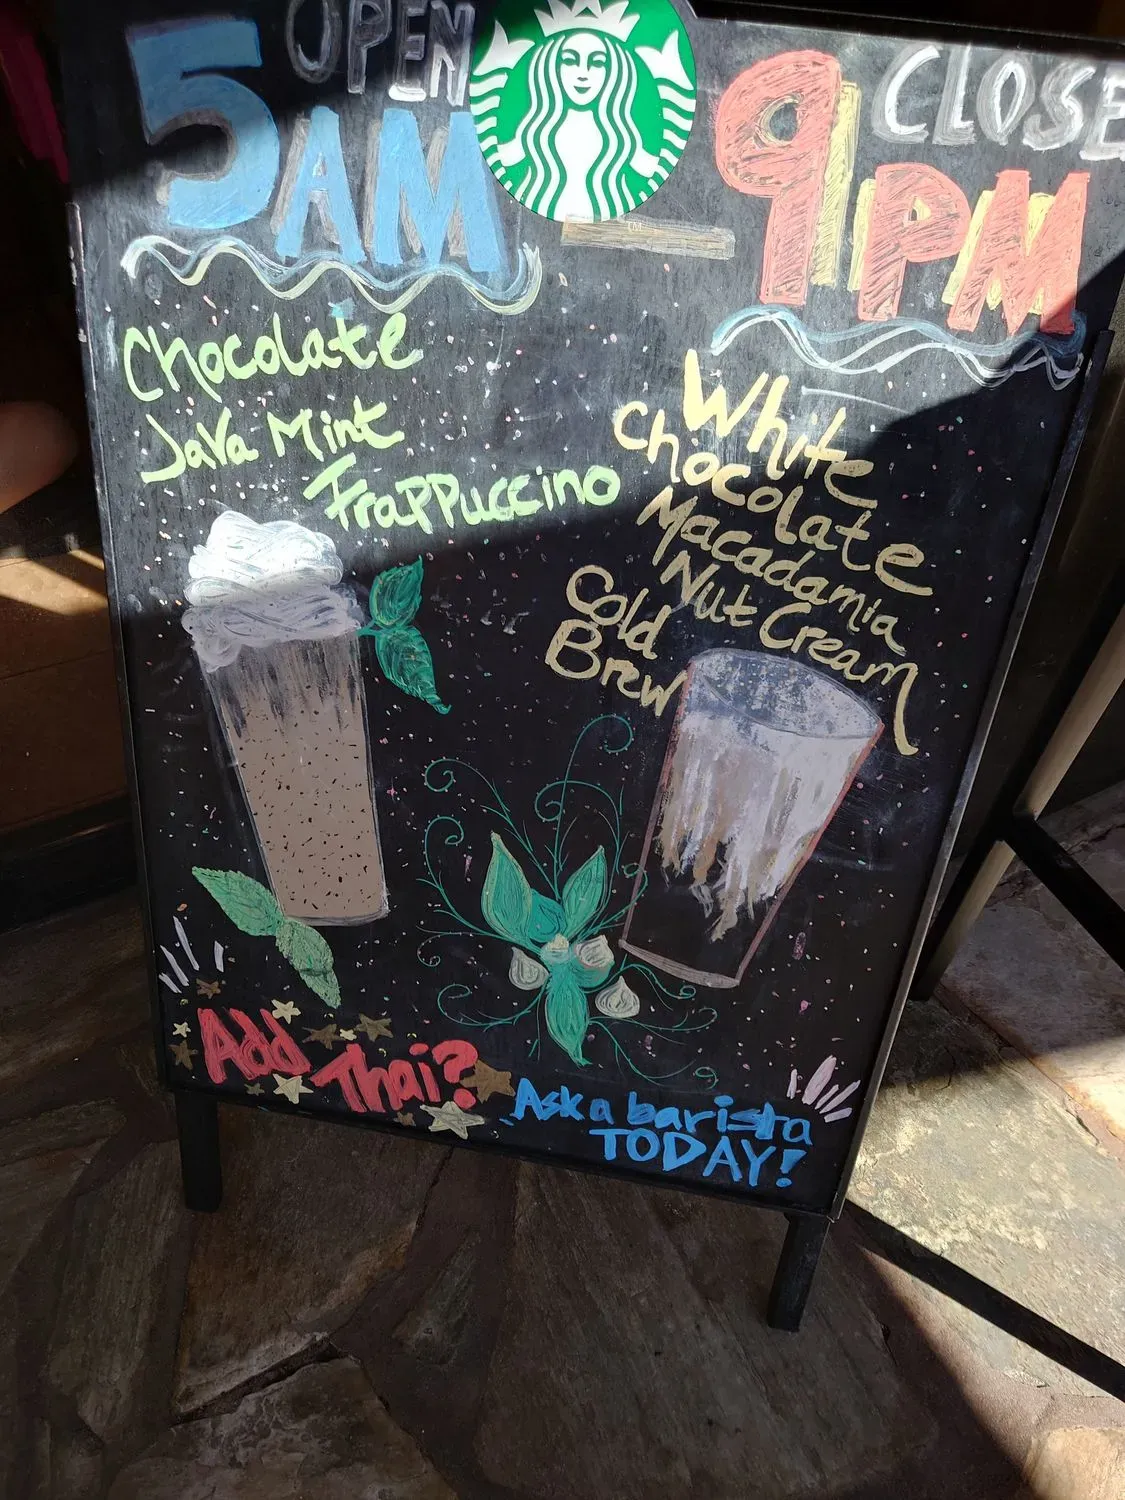 OPEN
5AM
CLOSE
9PM
Chocolate
Java Mint
Frappuccino
White
Chocolate
Macadamia
Nut Cream
Cold
Brew
Add Thai?
Ask a barista
TODAY!
TM